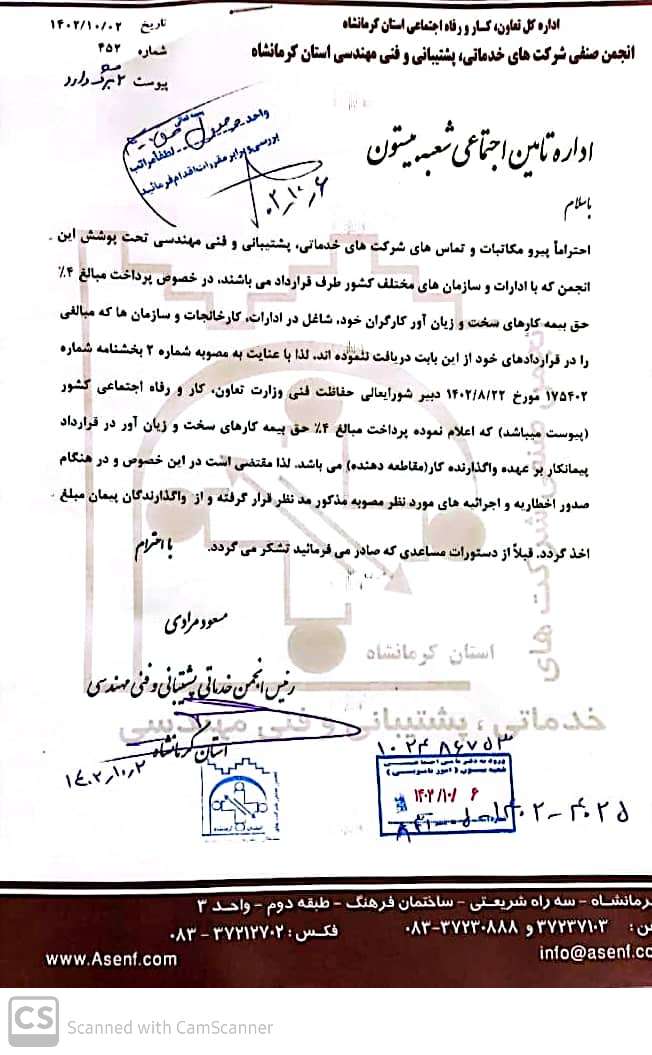 اداره کل تعاون، کار و رفاه اجتماعی استان کرمانشاه
انجمن صنفی شرکت های خدماتی، پشتیبانی و فنی مهندسی استان کرمانشاه
تاریخ ۱۴۰۲/۱۰/۰۲
شماره ۴۵۲
پیوست ۲ برگ دارد
واحد
لطفاً مراتب
بررسی و برابر مقررات اقدام فرمائید
۰۲-۱۰-۶
اداره تامین اجتماعی شعبه بیستون
باسلام
احتراماً پیرو مکاتبات و تماس های شرکت های خدماتی، پشتیبانی و فنی مهندسی تحت پوشش این
انجمن که با ادارات و سازمان های مختلف کشور طرف قرارداد می باشند، در خصوص پرداخت مبالغ ۴٪
حق بیمه کارهای سخت و زیان آور کارگران خود، شاغل در ادارات، کارخانجات و سازمان ها که مبالغی
را در قراردادهای خود از این بابت دریافت ننموده اند. لذا با عنایت به مصوبه شماره ۲ بخشنامه شماره
۱۷۵۴۰۲ مورخ ۱۴۰۲/۸/۲۲ دبیر شورایعالی حفاظت فنی وزارت تعاون، کار و رفاه اجتماعی کشور
(پیوست میباشد) که اعلام نموده پرداخت مبالغ ۴٪ حق بیمه کارهای سخت و زیان آور در قرارداد
پیمانکار بر عهده واگذارنده کار(مقاطعه دهنده) می باشد. لذا مقتضی است در این خصوص و در هنگام
صدور اخطاریه و اجرائیه های مورد نظر مصوبه مذکور مد نظر قرار گرفته و از واگذارندگان پیمان مبلغ
اخذ گردد. قبلاً از دستورات مساعدی که صادر می فرمائید تشکر می گردد.
با احترام
مسعود مرادی
رئیس انجمن خدماتی پشتیبانی و فنی مهندسی
استان کرمانشاه
۱۴۰۲-۱۰-۲
استان کرمانشاه
انجمن صنفی شرکت های
خدماتی ، پشتیبانی و فنی مهندسی
۱۰۲۴۸۶۷۵۳
۱۴۰۲/۱۰/ ۶
۱۴۰۲-۴۰۲۵
کرمانشاه - سه راه شریعتی - ساختمان فرهنگ - طبقه دوم - واحد ۳
۳۷۲۳۷۱۰۳ و ۳۷۲۳۰۸۸۸-۰۸۳
فکس: ۳۷۲۱۲۷۰۲ - ۰۸۳
www.Asenf.com
info@asenf.co
CS Scanned with CamScanner